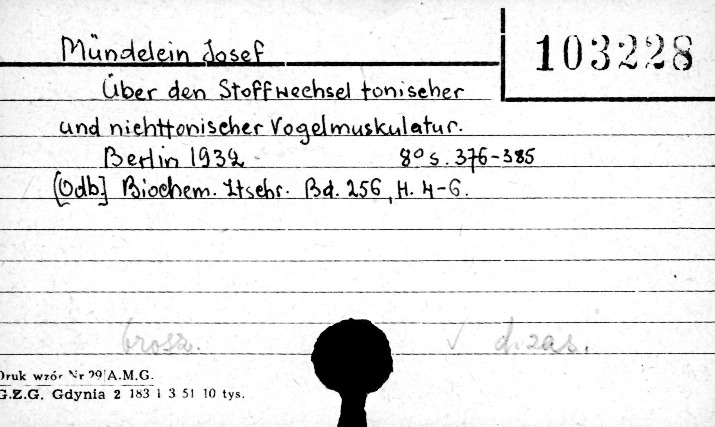 Mündelein Josef
103228
Über den Stoffwechsel tonischer
und nichttonischer Vogelmuskulatur.
Berlin 1932. 8° s. 376-385
[Odb] Biochem. Ztschr. Bd. 256, H. 4-6.
brosz. d. zas.
Druk wzór Nr 29 A.M.G.
G.Z.G. Gdynia 2 183 1 3 51 10 tys.